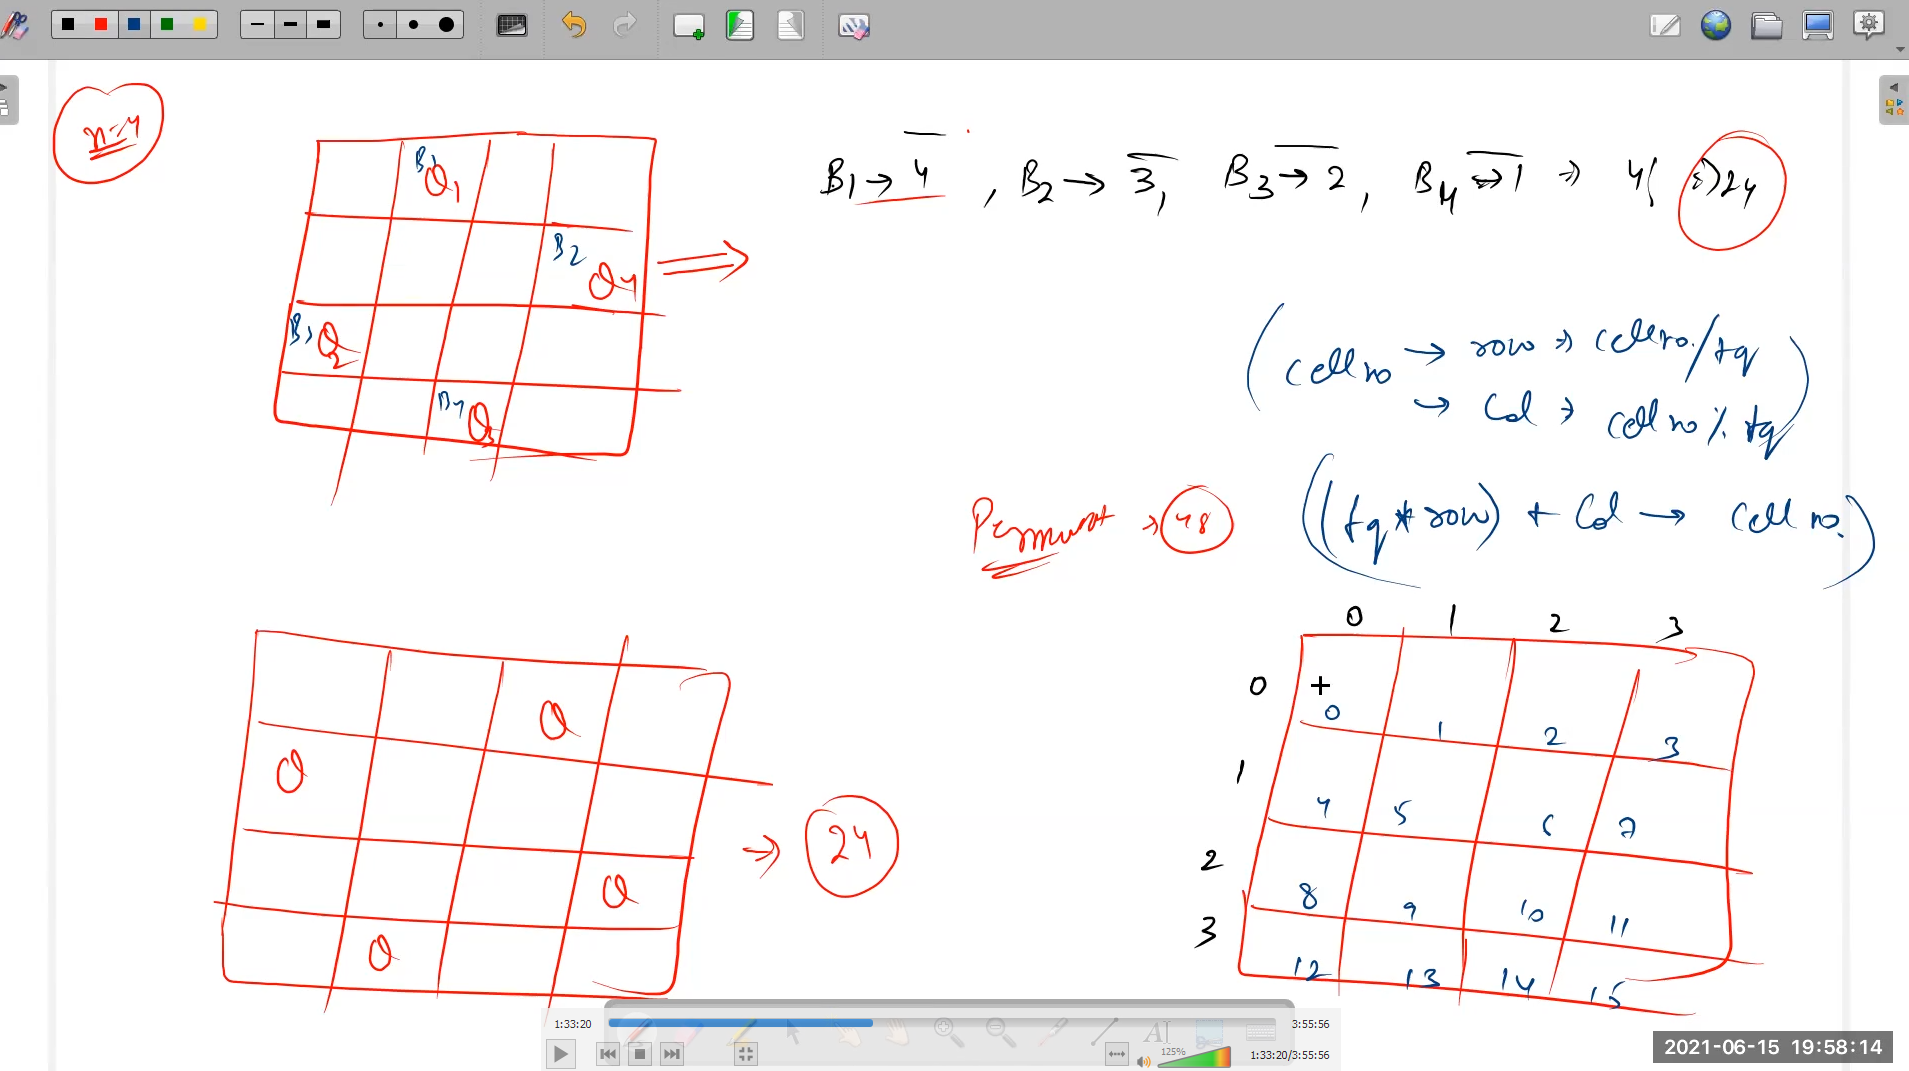 n=4
B1 Q1
B2 Q4
B3 Q2
B4 Q3
B1 → 4 , B2 → 3, B3 → 2, B4 → 1 ⇒ 4! ⇒ 24
cell no → row ⇒ cell no./tq
→ Col ⇒ cell no % tq
⇒ 48
((tq * row) + Col → cell no.)
Q
Q
Q
Q
→ 24
0 1 2 3
0
0 1 2 3
1
4 5 6 7
2
8 9 10 11
3
12 13 14 15
1:33:20
3:55:56
125%
1:33:20/3:55:56
2021-06-15 19:58:14